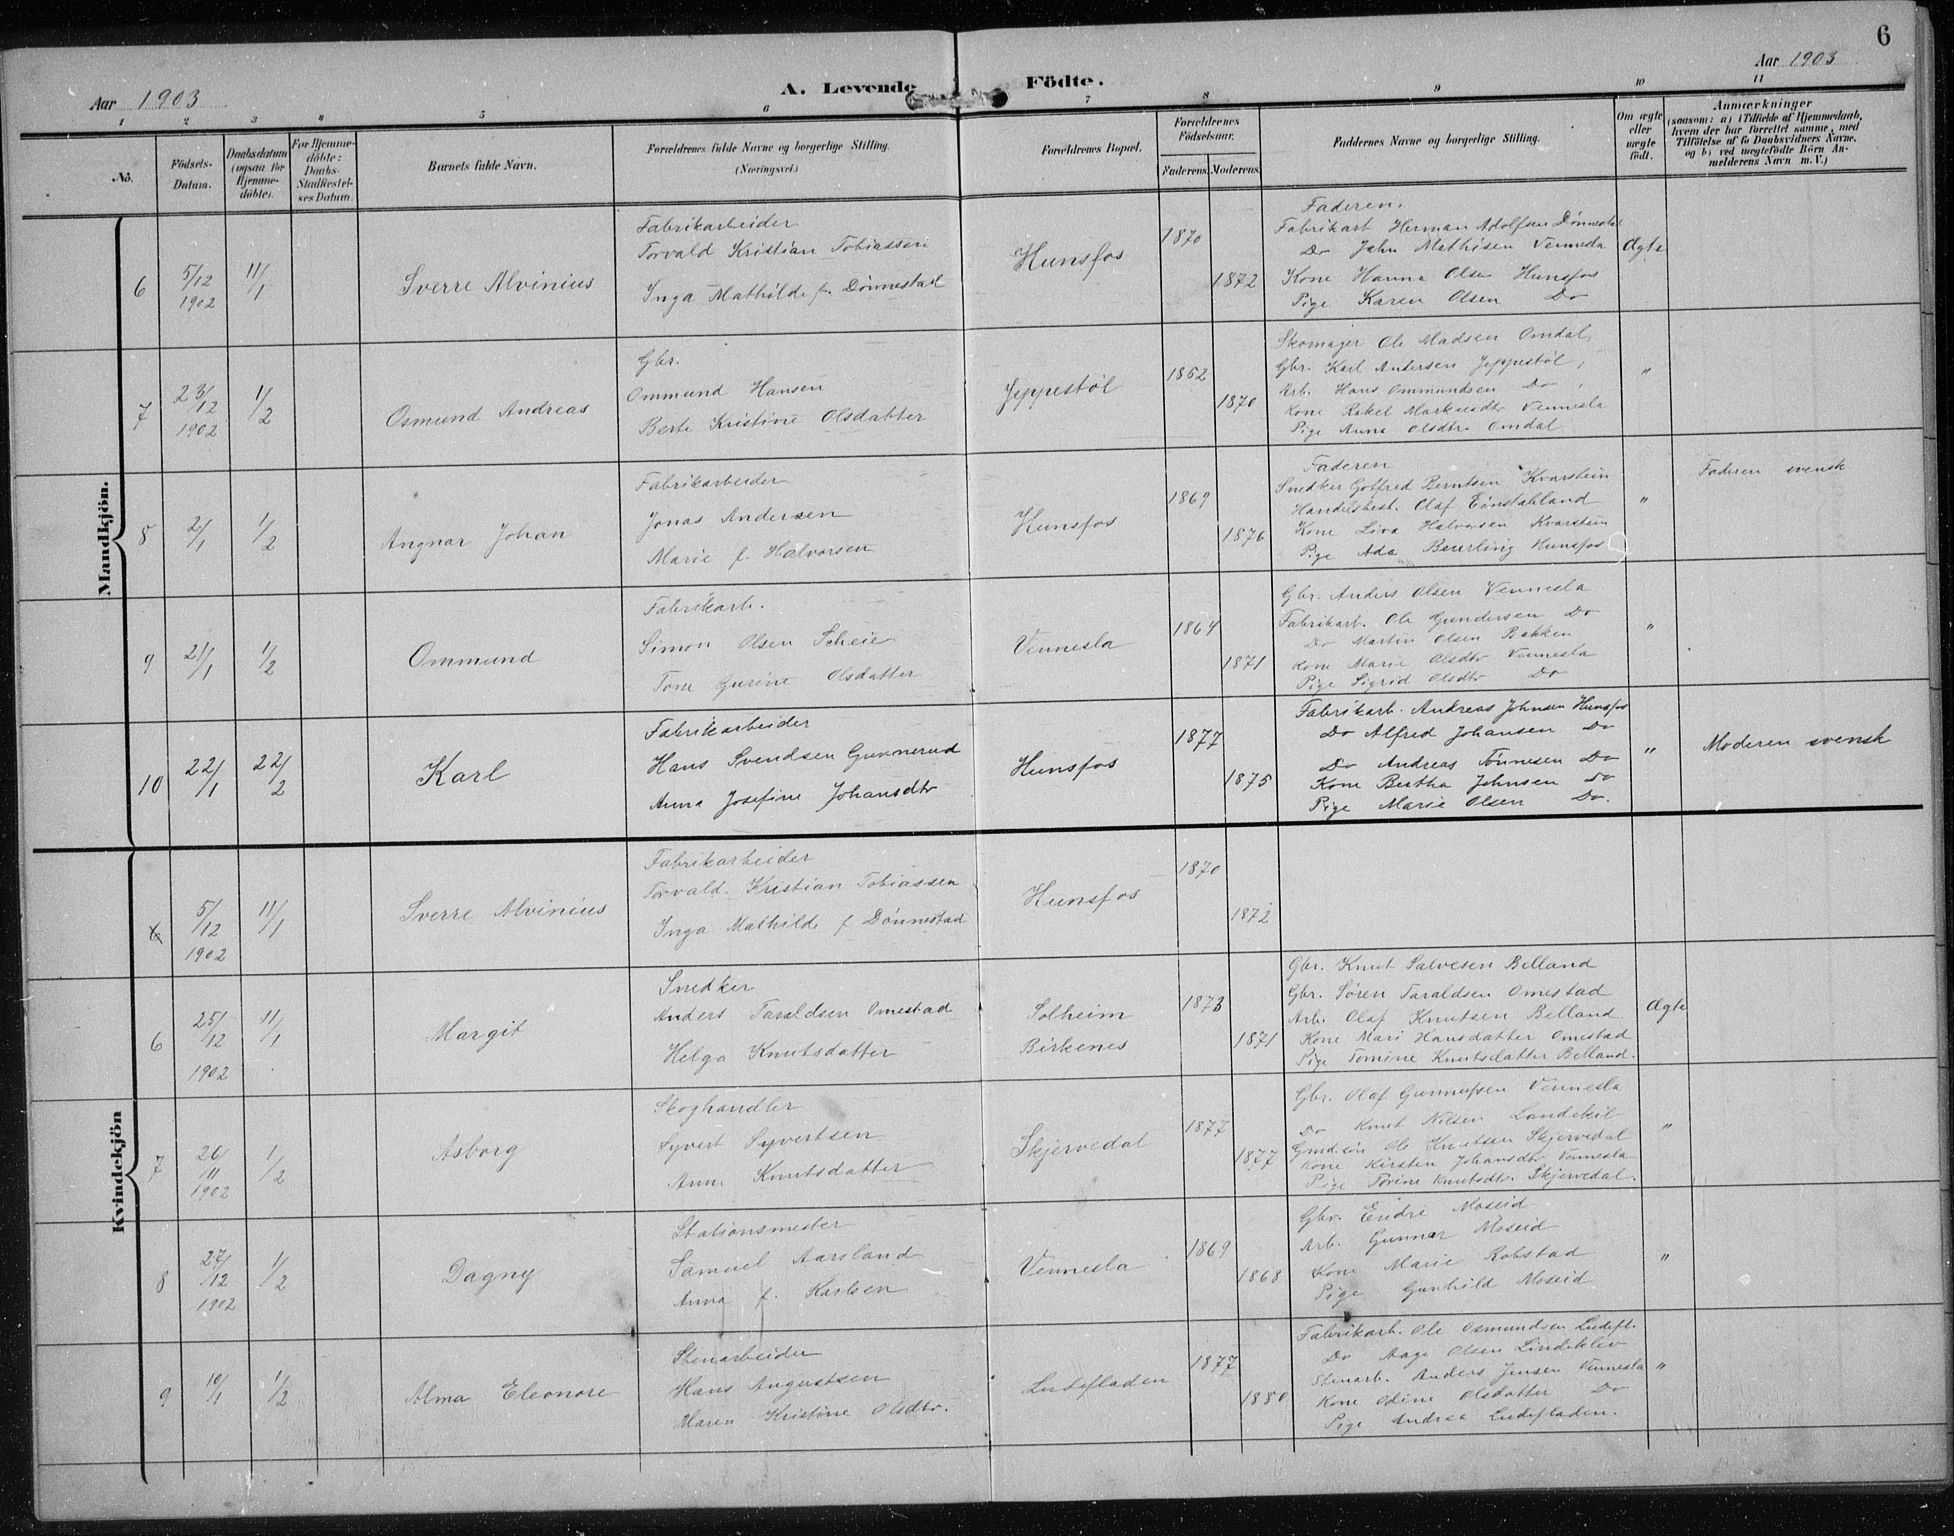 6
Aar 1903
A. Levende Födte.
Aar 1903
1 2 3 4 5 6 7 8 9 10 11
No.
Födsels-Datum.
Daabsdatum (ogsaa for Hjemme-döbte).
For Hjemme-döbte: Daabs-Stadfæstel-ses Datum.
Barnets fulde Navn.
Forældrenes fulde Navne og borgerlige Stilling.
(Næringsvei.)
Forældrenes Bopæl.
Forældrenes Födselsaar.
Faderens. Moderens.
Faddernes Navne og borgerlige Stilling.
Om ægte eller uægte födt.
Anmærkninger
(saasom: a) i Tilfælde af Hjemmedaab,
hvem der har forrettet samme, med
Tilföielse af to Daabsvidners Navne,
og b) ved uægtefödte Börn An-
melderens Navn m. V.)
Mandkjön.
6
5/12 1902
11/1
Sverre Alvinius
Fabrikarbeider
Torvald Kristian Tobiassen
Inga Mathilde f. Dønnestad
Hunsfos
1870
1872
Faderen.
Fabrikarb Herman Adolfsen Dønnestad
Do Jahn Mathisen Vennesla
Kone Hanna Olsen Hunsfos
Pige Karen Olsen Do
Ægte
7
23/12 1902
1/2
Osmund Andreas
Gbr.
Ommund Hansen
Berte Kristine Olsdatter
Jeppestøl
1852
1870
Skomager Ole Madsen Omdal
Gbr. Karl Andersen Jeppestøl
Arb. Hans Ommundsen Do
Kone Rakel Markusdtr Vennesla
Pige Anna Olsdtr Omdal
"
8
2/1
1/2
Angnar Johan
Fabrikarbeider
Jonas Andersen
Marie f. Halvorsen
Hunsfos
1869
1876
Faderen
Snedker Gotfred Berntsen Kvarstein
Handelsbest. Olaf Einstabland
Kone Liva Halvorsen Kvarstein
Pige Ada Beurling Hunsfos
"
Faderen svensk
9
21/1
1/2
Ommund
Fabrikarb.
Simon Olsen Scheie
Tone Gurine Olsdatter
Vennesla
1864
1871
Gbr. Anders Olsen Vennesla
Fabrikarb. Ole Gundersen Do
Do Martin Olsen Bakken
Kone Marie Olsdtr Vennesla
Pige Sigrid Olsdtr Do
"
10
22/1
22/2
Karl
Fabrikarbeider
Hans Svendsen Gunnerud
Anna Josefine Johansdtr
Hunsfos
1877
1875
Fabrikarb. Andreas Johnsen Hunsfos
Do Alfred Johansen Do
Do Andreas Tønnesen Do
Kone Bertha Johnsen Do
Pige Marie Olsen Do.
"
Moderen svensk
Kvindekjön
6
5/12 1902
11/1
Sverre Alvinius
Fabrikarbeider
Torvald. Kristian Tobiassen
Inga Mathilde f Dønnestad
Hunsfos
1870
1872
6
25/12 1902
11/1
Margit
Snedker
Anders Taraldsen Omestad
Helga Knutsdatter
Solheim
Birkenes
1873
1871
Gbr. Knut Salvesen Belland
Gbr. Søren Taraldsen Omestad
Arb. Olaf Knutsen Belland
Kone Mari Hansdatter Omestad
Pige Tomine Knutsdatter Belland.
Ægte
7
26/11 1902
1/2
Asborg
Skoghandler
Syvert Syvertsen
Anne Knutsdatter
Skjervedal
1877
1877
Gbr. Olaf Gunnufsen Vennesla
Do Knut Nilsen Landekil
Grudsøn Ole Knutsen Skjervedal
Kone Kirsten Johansdtr Vennesla
Pige Torine Knutsdtr. Skjervedal.
"
8
27/12 1902
1/2
Dagny
Stationsmester
Samuel Aarsland
Anna f. Karlsen
Vennesla
1869
1868
Gbr. Endre Moseid
Arb. Gunnar Moseid
Kone Marie Robstad
Pige Gunhild Moseid
"
9
10/1
1/2
Alma Eleonore
Stenarbeider
Hans Augustsen
Maren Kristine Olsdtr.
Ludefladen
1877
1880
Fabrikarb. Ole Osmundsen Ludefl.
Do Aage Olsen Lindekleiv
Stenarb. Anders Jensen Vennesla
Kone Odine Olsdatter Do
Pige Andrea Ludefladen.
"